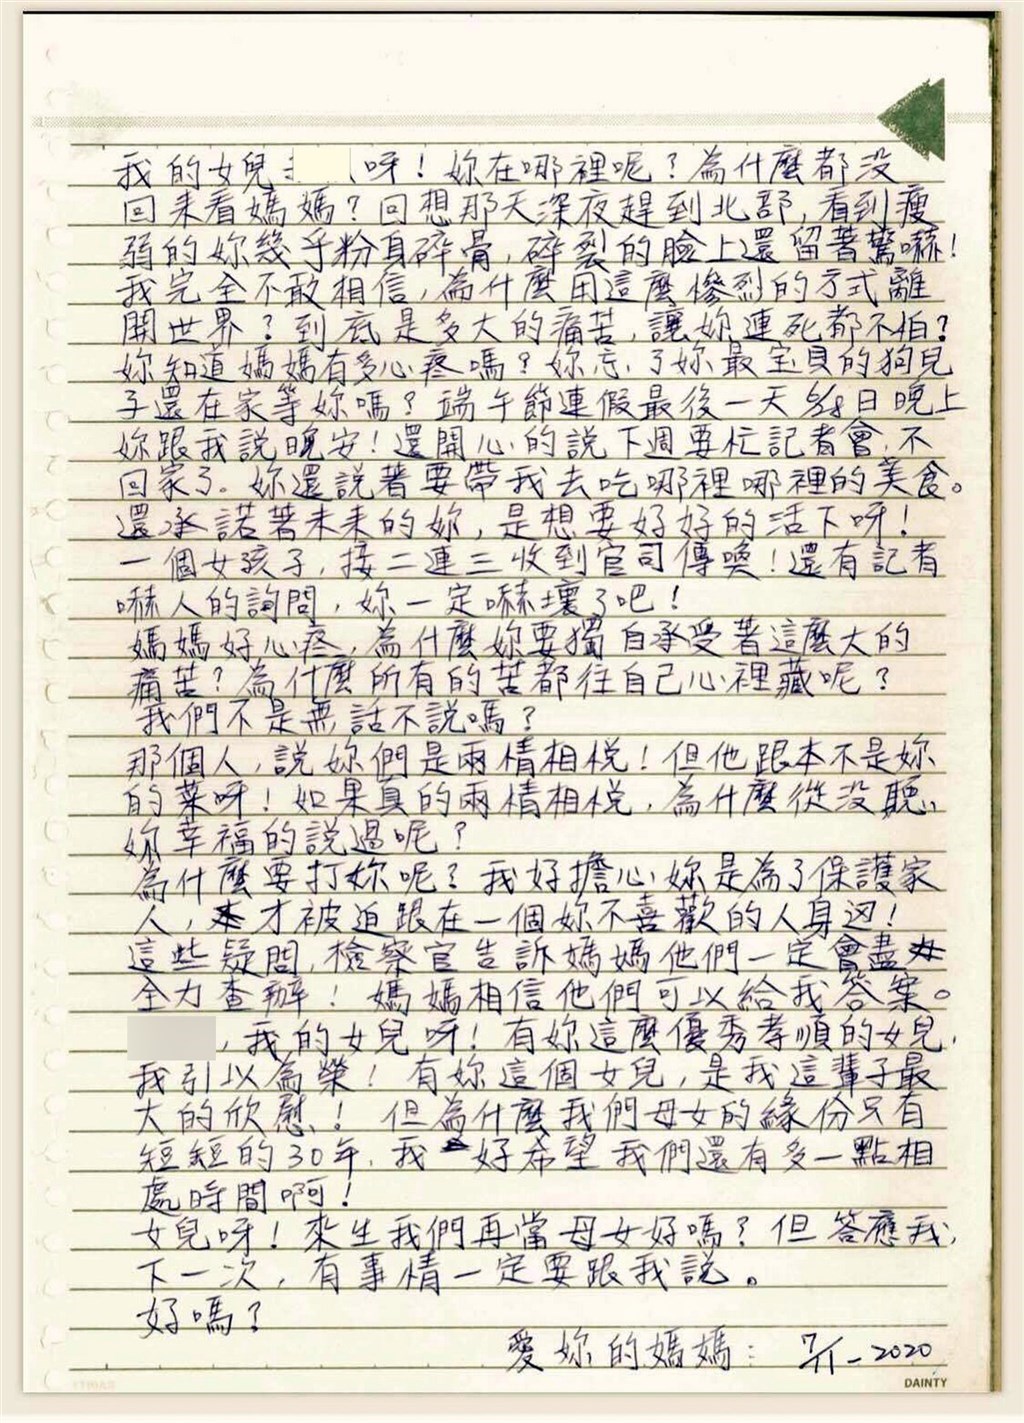 我的女兒 呀！妳在哪裡呢？為什麼都没
回来看媽媽？回想那天深夜趕到北部，看到瘦
弱的妳幾乎粉身碎骨，碎裂的臉上還留著驚嚇！
我完全不敢相信，為什麼用這麼慘烈的方式離
開世界？到底是多大的痛苦，讓妳連死都不怕？
妳知道媽媽有多心疼嗎？妳忘了妳最宝貝的狗兒
子還在家等妳嗎？端午節連假最後一天6/28日晚上
妳跟我說晚安！還開心的說下週要忙記者會，不
回家了。妳還説著要帶我去吃哪裡哪裡的美食。
還承諾著未来的妳，是想要好好的活下呀！
一個女孩子，接二連三收到官司傳喚！還有記者
嚇人的詢問，妳一定嚇壞了吧！
媽媽好心疼，為什麼妳要獨自承受著這麼大的
痛苦？為什麼所有的苦都往自己心裡藏呢？
我們不是無話不說嗎？
那個人，説妳們是兩情相悦！但他跟本不是妳
的菜呀！如果真的兩情相悅，為什麼從没聽
妳幸福的說過呢？
為什麼要打妳呢？我好擔心妳是為了保護家
人，才被迫跟在一個妳不喜歡的人身边！
這些疑問，檢察官告訴媽媽他們一定會盡
全力查辦！媽媽相信他們可以給我答案。
，我的女兒呀！有妳這麼優秀孝順的女兒，
我引以為榮！有妳這個女兒，是我這輩子最
大的欣慰！但為什麼我們母女的緣份只有
短短的30年，我好希望我們還有多一點相
處時間啊！
女兒呀！來生我們再當母女好嗎？但答應我，
下一次，有事情一定要跟我說。
好嗎？
愛妳的媽媽： 7/11-2020
DAINTY